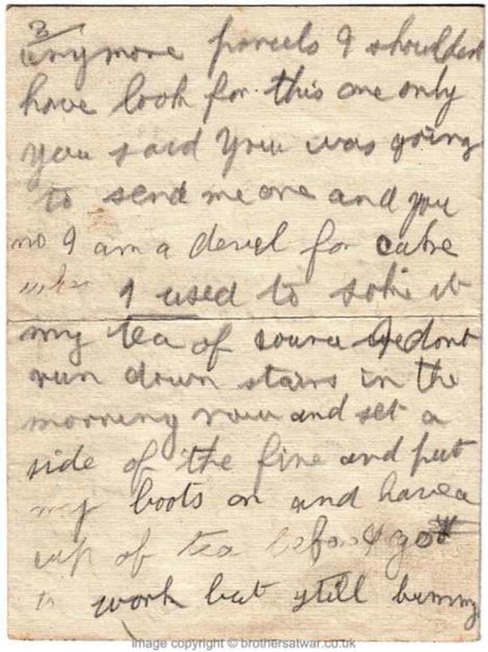 3
anymore parcels I shouldent
have look for this one only
you said you was going
to send me one and you
no I am a devel for cake
when I used to soke it
my tea of source I dont
run down stairs in the
morning now and set a
side of the fire and put
my boots on and have a
cup of tea before I go
to work but still
Image copyright © brothersatwar.co.uk